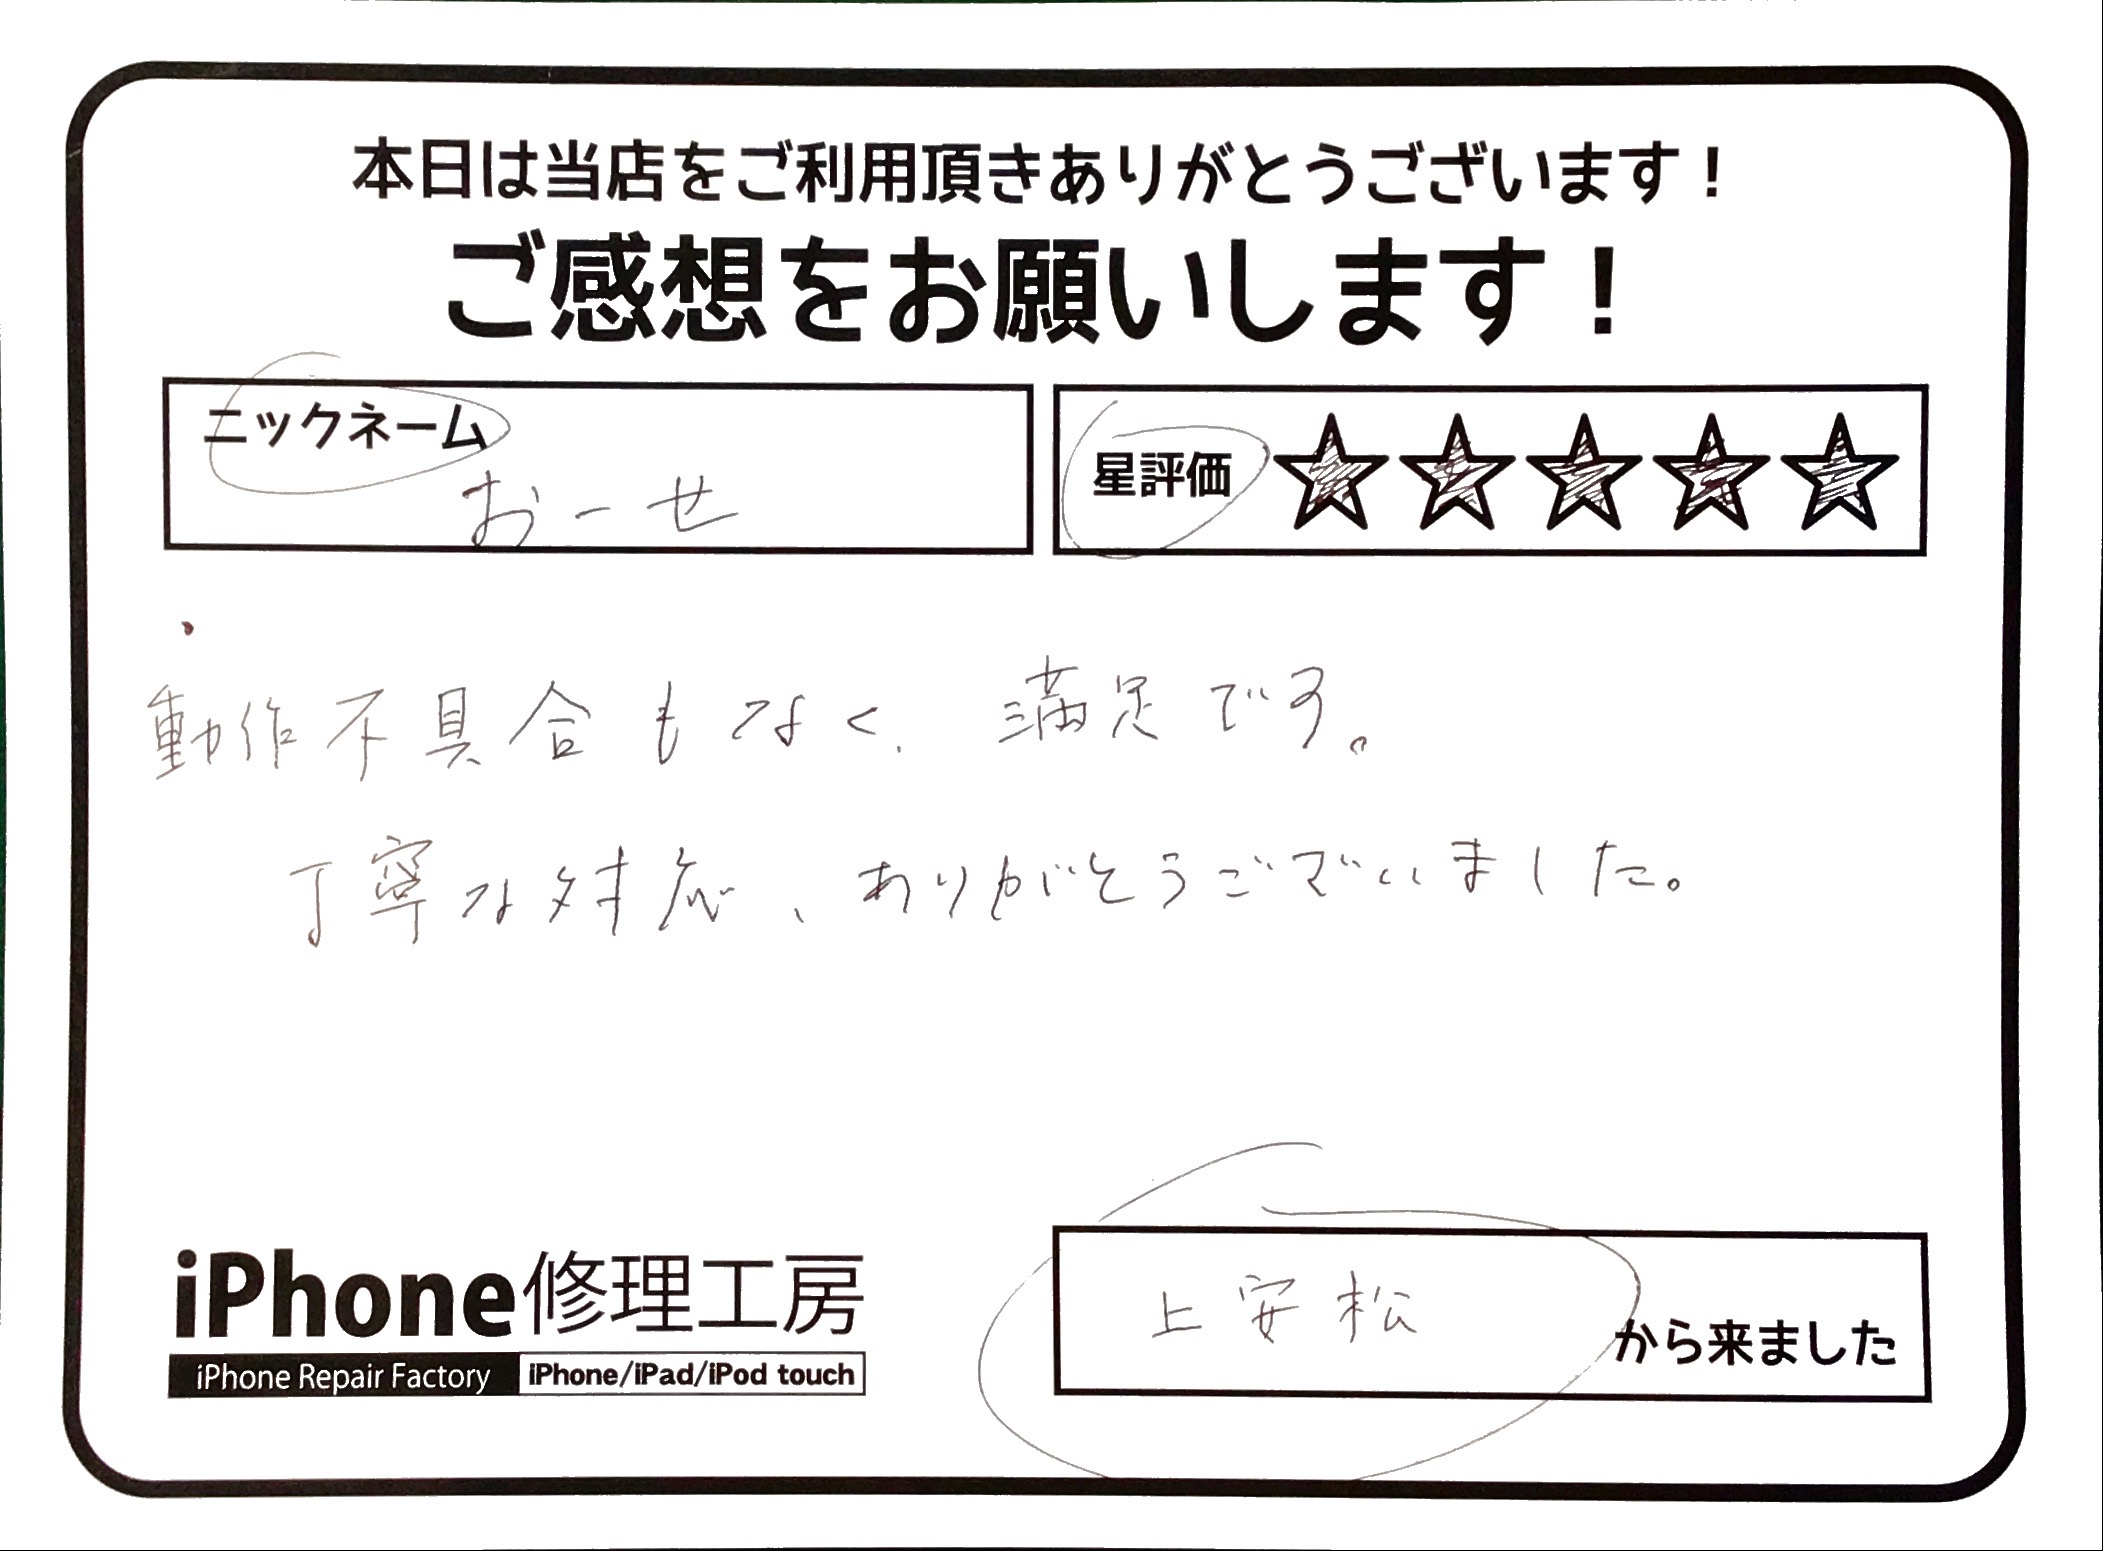 本日は当店をご利用頂きありがとうございます！
ご感想をお願いします！
ニックネーム
おーせ
星評価 ☆☆☆☆☆
動作不具合もなく、満足です。
丁寧な対応、ありがとうございました。
iPhone修理工房
iPhone Repair Factory iPhone/iPad/iPod touch
上安松 から来ました